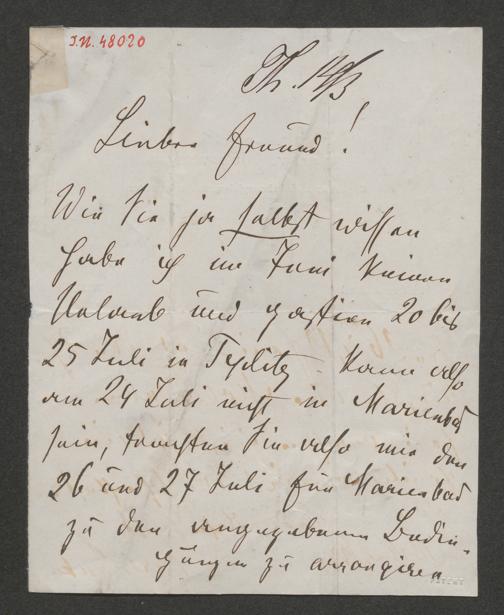 I.N. 48020
Th. 14/3
Lieber Freund!
Wie Sie ja selbst wissen
habe ich im Juni keinen
Urlaub und gastire 20 bis
25 Juli in Teplitz – kann also
am 24 Juli nicht in Marienbad
sein, trachten Sie also mir den
26 und 27 Juli für Marienbad
zu den angegebenen Bedin-
gungen zu arrangiren